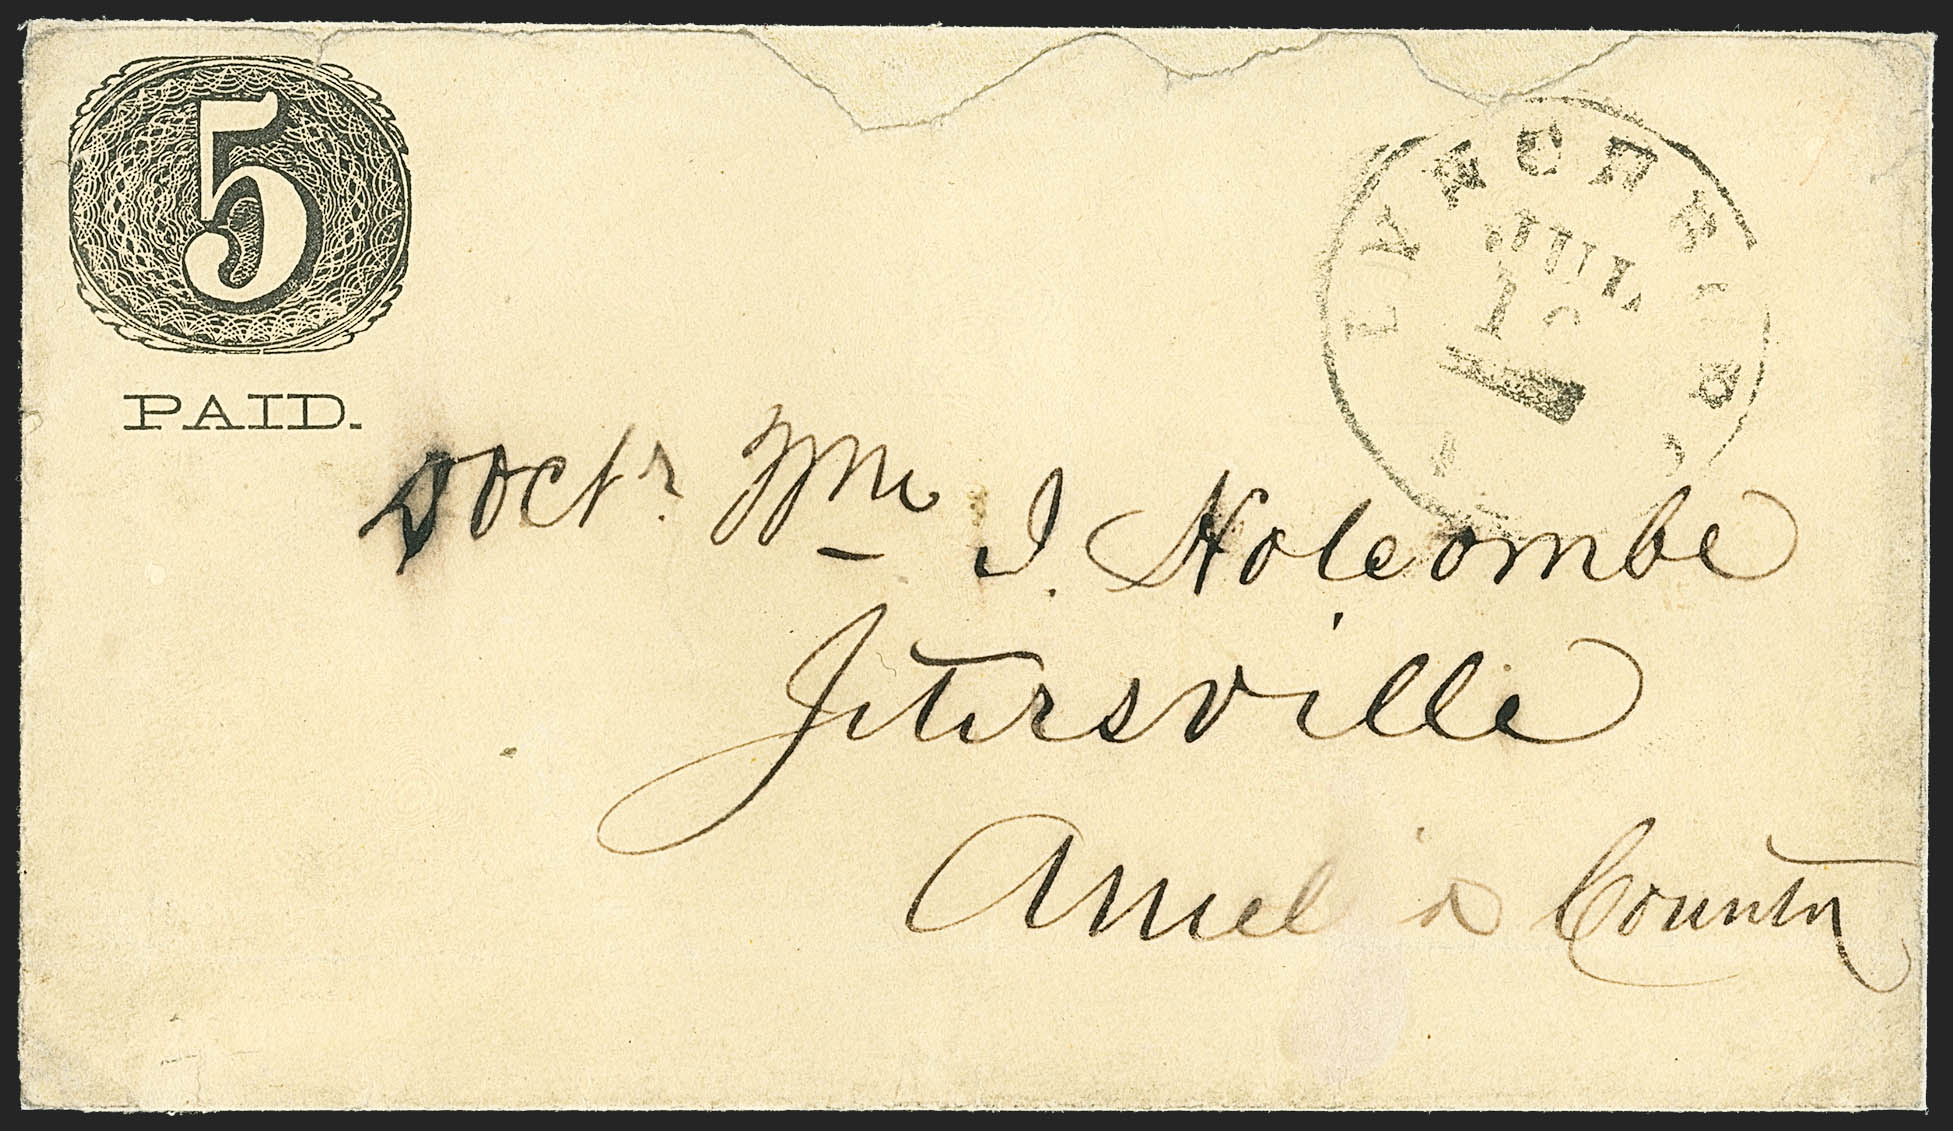 5
PAID.
LYNCHBURG
JUL
Doctr. Wm I. Holcombe
Jetersville
Amelia County